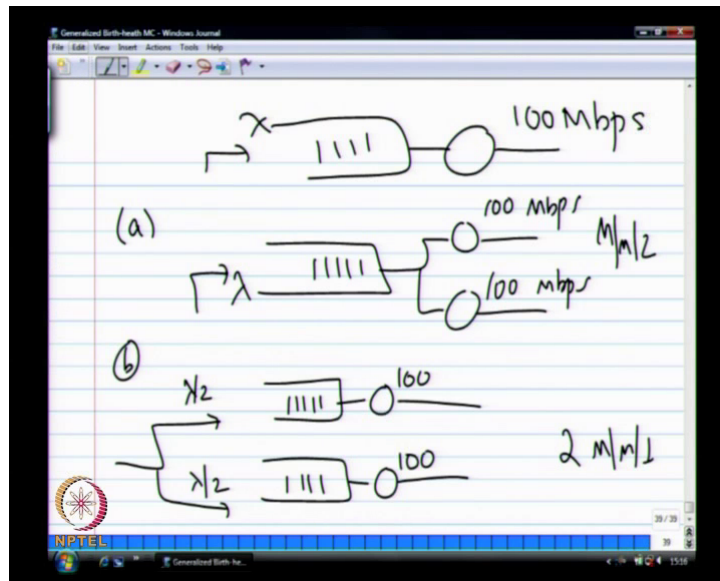 Generalized Birth-heath MC - Windows Journal
File Edit View Insert Actions Tools Help
λ 100 Mbps
(a)
100 Mbps
M/M/2
λ
100 Mbps
(b)
λ/2 100
2 M/M/1
λ/2 100
39 / 39
39
NPTEL
Generalized Birth-he...
15:16